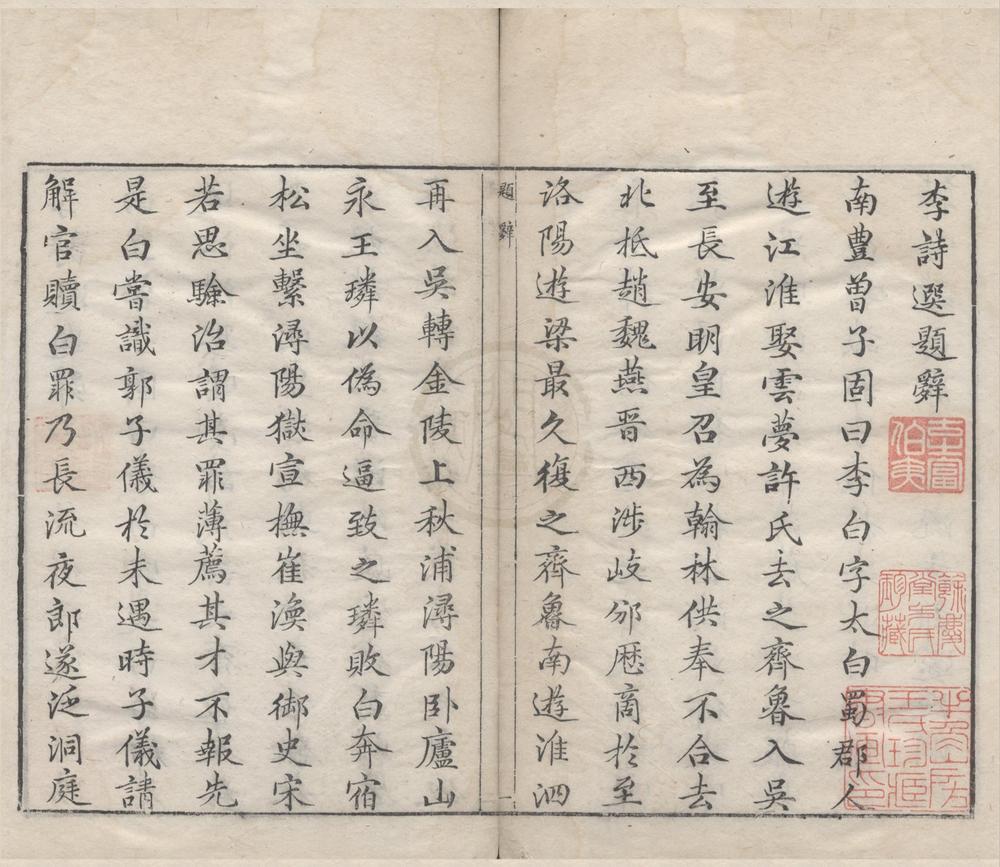 李詩選題辭
南豊曾子固曰李白字太白蜀郡人
遊江淮娶雲夢許氏去之齊魯入吳
至長安明皇召為翰林供奉不合去
北抵趙魏燕晋西涉岐邠厯商於至
洛陽遊梁最久復之齊魯南遊淮泗
題辭
一
再入吳轉金陵上秋浦潯陽卧廬山
永王璘以偽命逼致之璘敗白奔宿
松坐繫潯陽獄宣撫崔渙與御史宋
若思驗治謂其罪薄薦其才不報先
是白嘗識郭子儀於未遇時子儀請
解官贖白罪乃長流夜郎遂泛洞庭